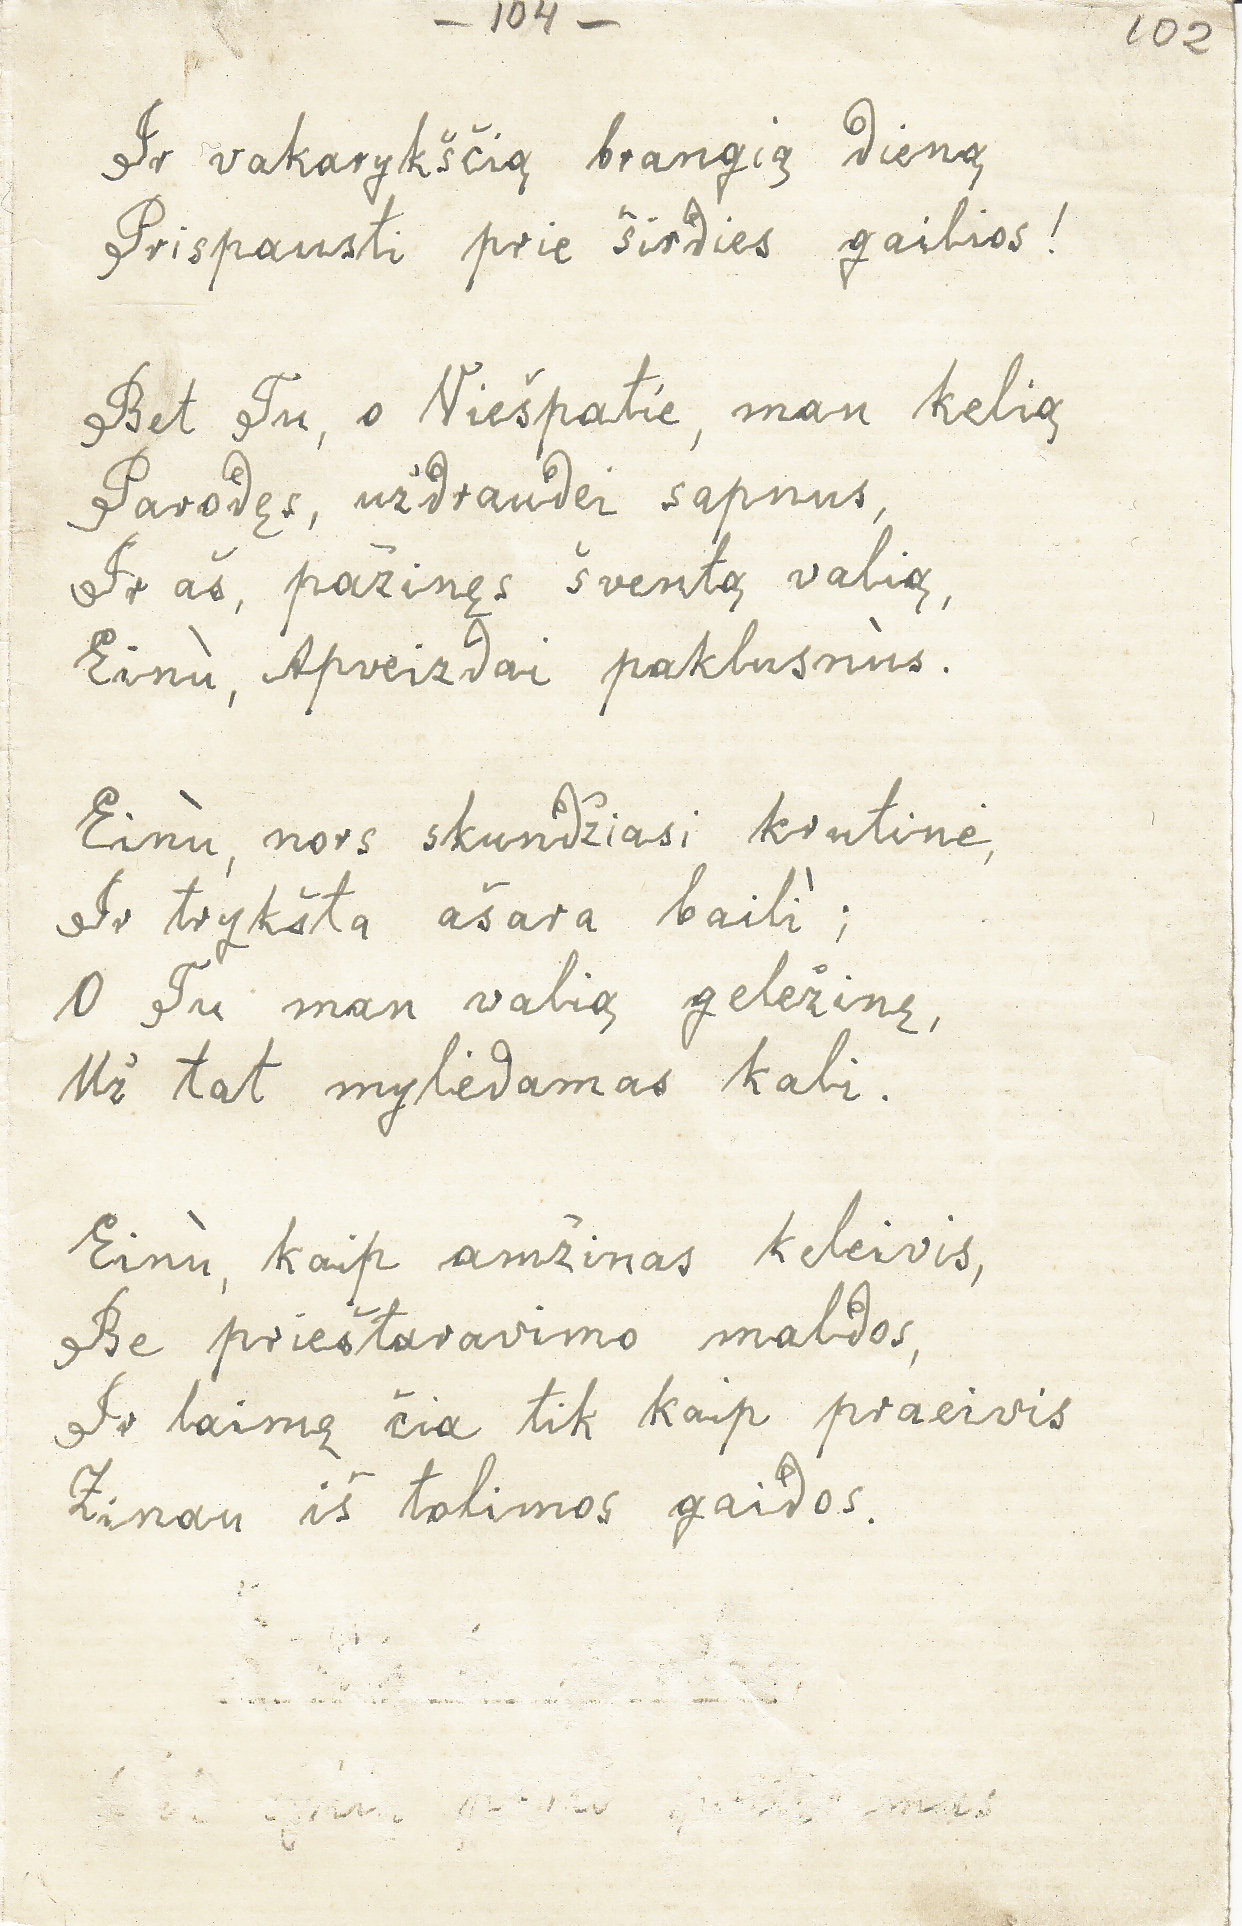 – 104 –
102
Ir vakarykščią brangią dieną
Prispausti prie širdies gailios!
Bet Tu, o Viešpatie, man kelią
Parodęs, uždraudei sapnus,
Ir aš, pažinęs šventą valią,
Einù, Apveizdai paklusnùs.
Einù, nors skundžiasi krutinė,
Ir trykšta ašara bailì;
O Tu man valią geležinę,
Už tat mylėdamas kali.
Einù, kaip amžinas keleivis,
Be prieštaravimo maldos,
Ir laimę čia tik kaip praeivis
Žinau iš tolimos gaidos.